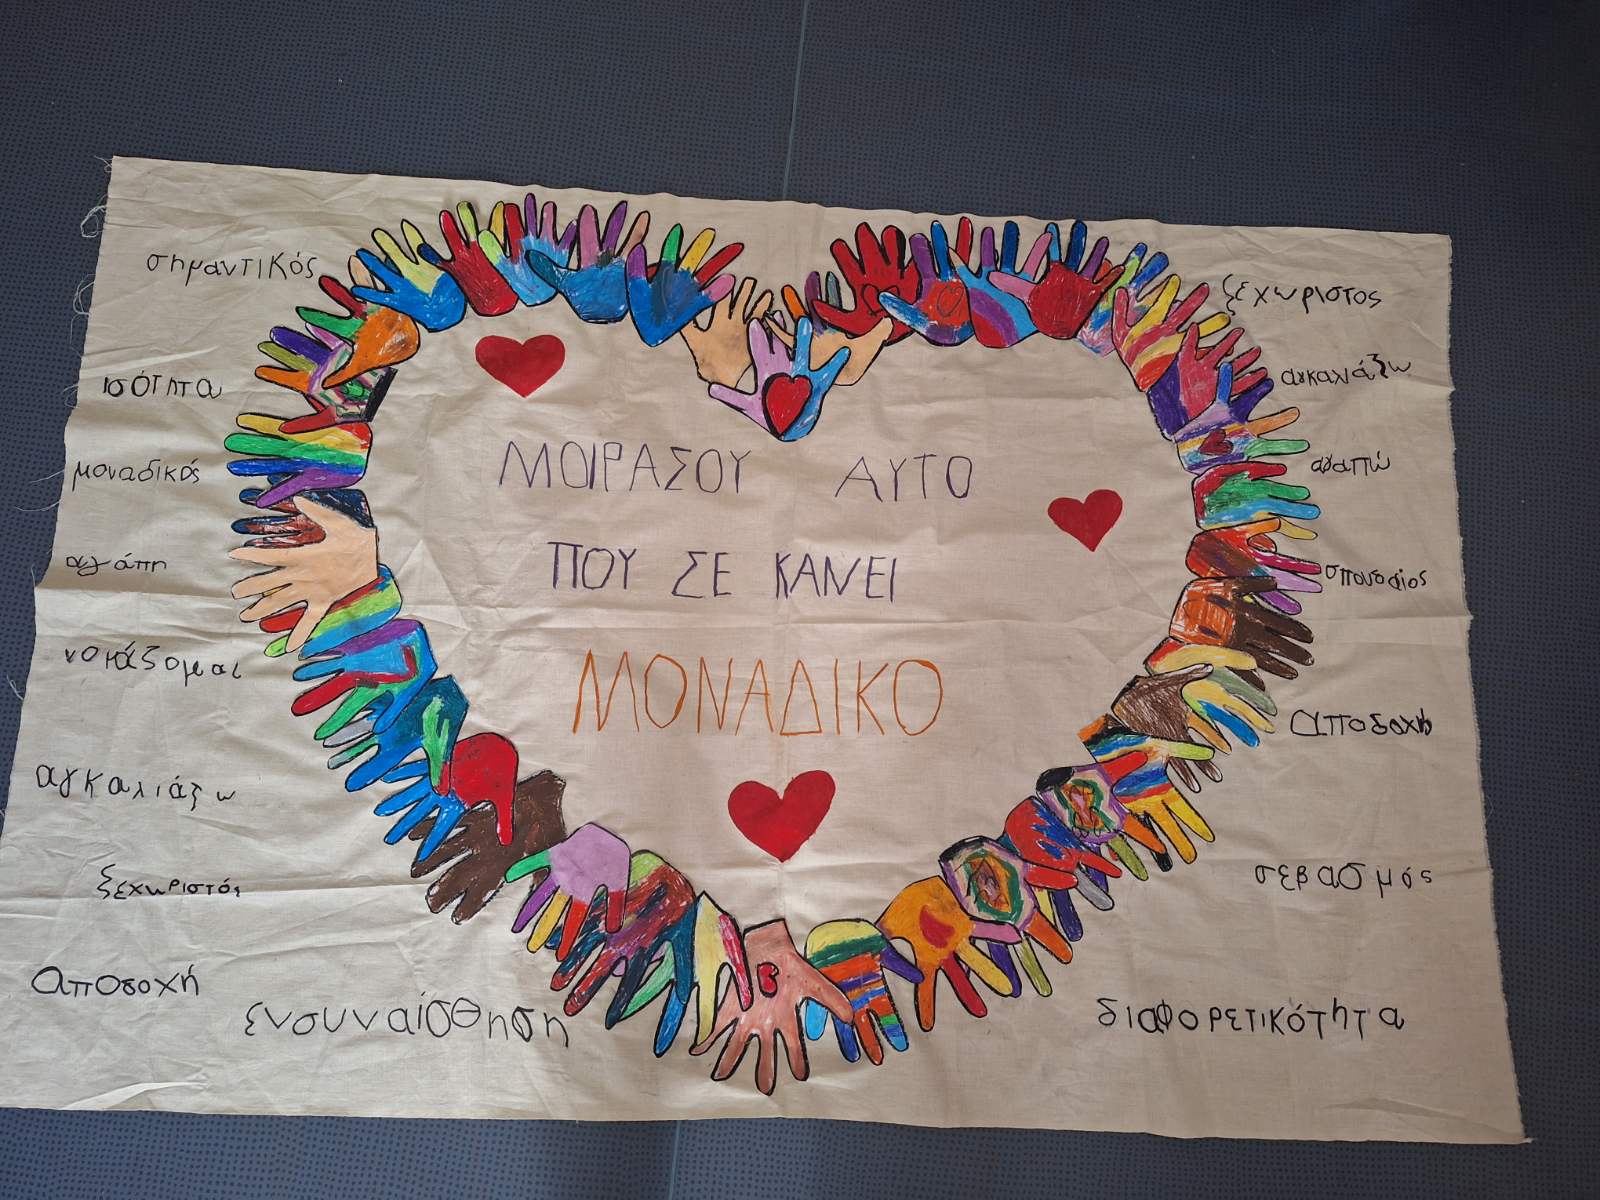 σημαντικός
ισότητα
μοναδικός
αγάπη
νοιάζομαι
αγκαλιάζω
ξεχωριστός
αποδοχή
ενσυναίσθηση
ΜΟΙΡΑΣΟΥ ΑΥΤΟ
ΠΟΥ ΣΕ ΚΑΝΕΙ
ΜΟΝΑΔΙΚΟ
ξεχωριστος
αγκαλιάζω
αγαπώ
σπουδαίος
αποδοχή
σεβασμός
διαφορετικότητα